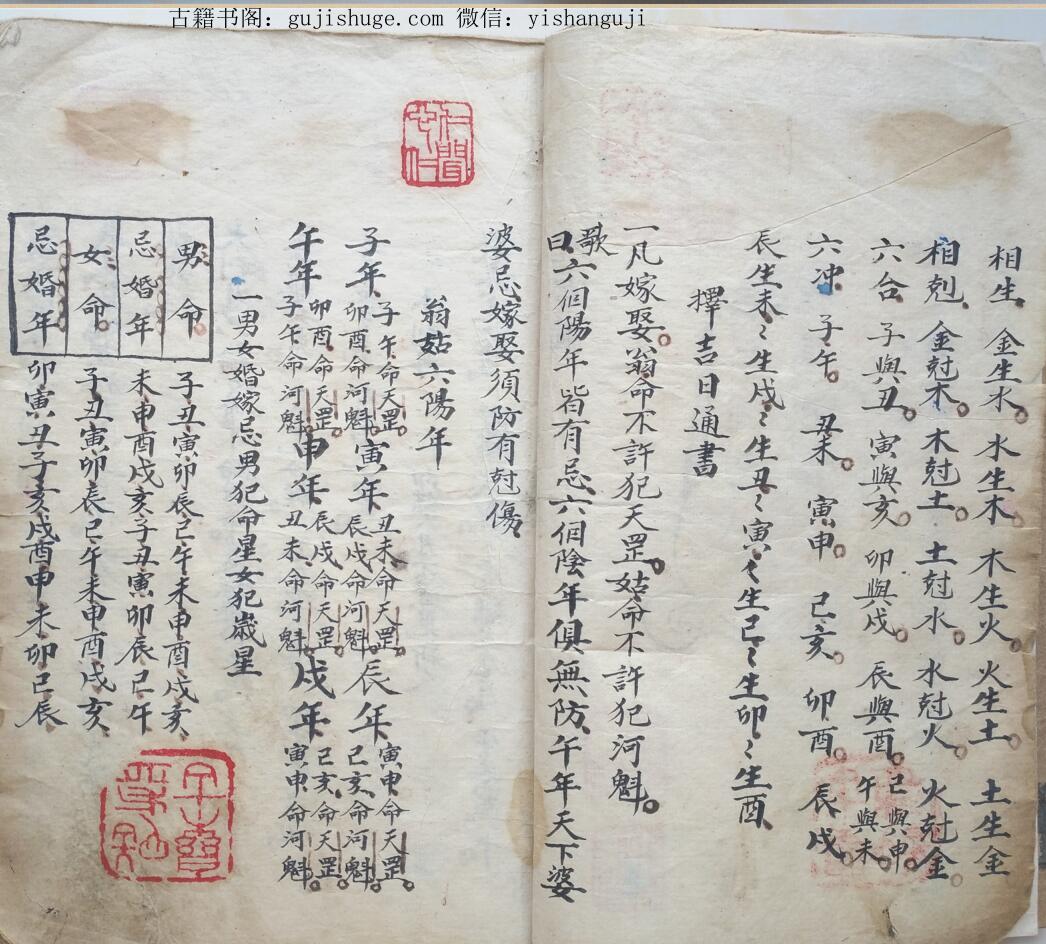 古籍书阁：gujishuge.com 微信：yishanguji
相生 金生水。水生木。木生火。火生土。土生金
相尅 金尅木。木尅土。土尅水。水尅火。火尅金
六合 子與丑。寅與亥。卯與戌。辰與酉。巳與申。午與未
六冲 子午。丑未。寅申。巳亥。卯酉。辰戌
辰生未〻生戌〻生丑〻寅〻生巳〻生卯〻生酉
擇吉日通書
一凡嫁娶。翁命不許犯天罡。姑命不許犯河魁。
歌曰六個陽年皆有忌六個陰年俱無防午年天下婆
婆忌嫁娶須防有尅傷
翁姑六陽年
子年 子午命天罡。卯酉命河魁。寅年 丑未命天罡。辰戌命河魁。辰年 寅申命天罡。巳亥命河魁。
午年 卯酉命天罡。子午命河魁。申年 辰戌命天罡。丑未命河魁。戌年 巳亥命天罡。寅申命河魁。
一男女婚嫁忌男犯命星女犯歲星
男命 子丑寅卯辰巳午未申酉戌亥
忌婚年 未申酉戌亥子丑寅卯辰巳午
女命 子丑寅卯辰巳午未申酉戌亥
忌婚年 卯寅丑子亥戌酉申未卯巳辰